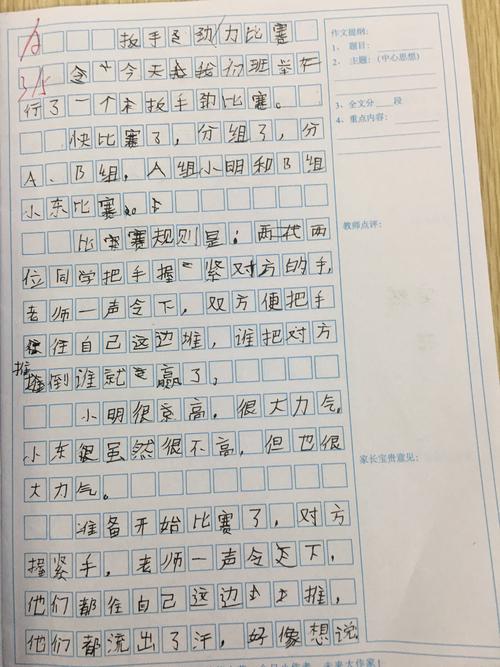 扳手劲力比赛
今天我们班举
行了一个扳手劲比赛。
快比赛了,分组了,分
A、B组,A组小明和B组
小东比赛。
比赛规则是:两
位同学把手握紧对方的手,
老师一声令下,双方便把手
往自己这边推,谁把对方
推倒谁就赢了。
小明很高,很大力气,
小东虽然很不高,但也很
大力气。
准备开始比赛了,对方
握紧手,老师一声令下,
他们都往自己这边推,
他们都流出了汗,好像想说
作文提纲:
1、题目:
2、主题:(中心思想)
3、全文分____段
4、重点内容:
教师点评:
家长宝贵意见:
未来大作家!